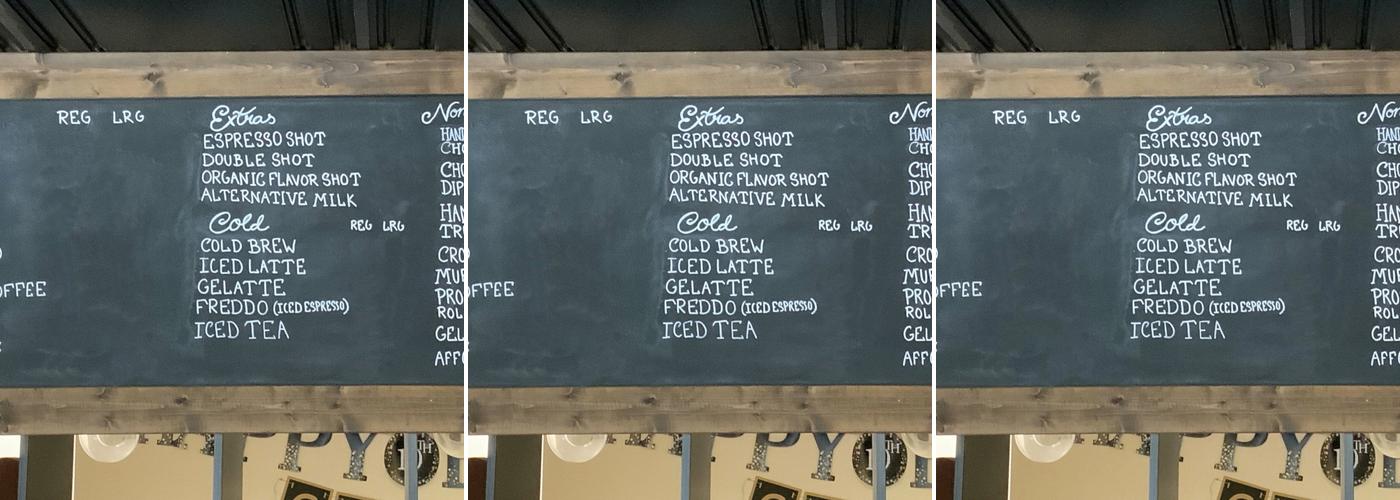 REG LRG
OFFEE
Extras
ESPRESSO SHOT
DOUBLE SHOT
ORGANIC FLAVOR SHOT
ALTERNATIVE MILK
Cold REG LRG
COLD BREW
ICED LATTE
GELATTE
FREDDO (ICED ESPRESSO)
ICED TEA
PPY
REG LRG
OFFEE
Extras
ESPRESSO SHOT
DOUBLE SHOT
ORGANIC FLAVOR SHOT
ALTERNATIVE MILK
Cold REG LRG
COLD BREW
ICED LATTE
GELATTE
FREDDO (ICED ESPRESSO)
ICED TEA
PPY
REG LRG
FFEE
Extras
ESPRESSO SHOT
DOUBLE SHOT
ORGANIC FLAVOR SHOT
ALTERNATIVE MILK
Cold REG LRG
COLD BREW
ICED LATTE
GELATTE
FREDDO (ICED ESPRESSO)
ICED TEA
PPY